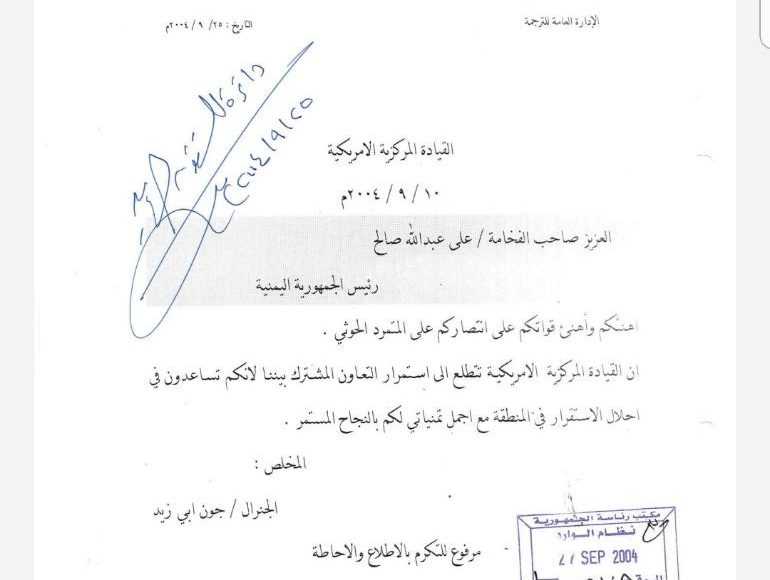 الإدارة العامة للترجمة
التاريخ : ٢٥ / ٩ / ٢٠٠٤م
القيادة المركزية الامريكية
١٠ / ٩ / ٢٠٠٤م
العزيز صاحب الفخامة / علي عبدالله صالح
رئيس الجمهورية اليمنية
اهنئكم وأهنئ قواتكم على انتصاركم على المتمرد الحوثي .
ان القيادة المركزية الامريكية تتطلع الى استمرار التعاون المشترك بيننا لانكم تساعدون في
احلال الاستقرار في المنطقة مع اجمل تمنياتي لكم بالنجاح المستمر .
المخلص :
الجنرال / جون ابي زيد
مرفوع للتكرم بالاطلاع والاحاطة
مكتب رئاسة الجمهورية
نظام الوارد
27 SEP 2004